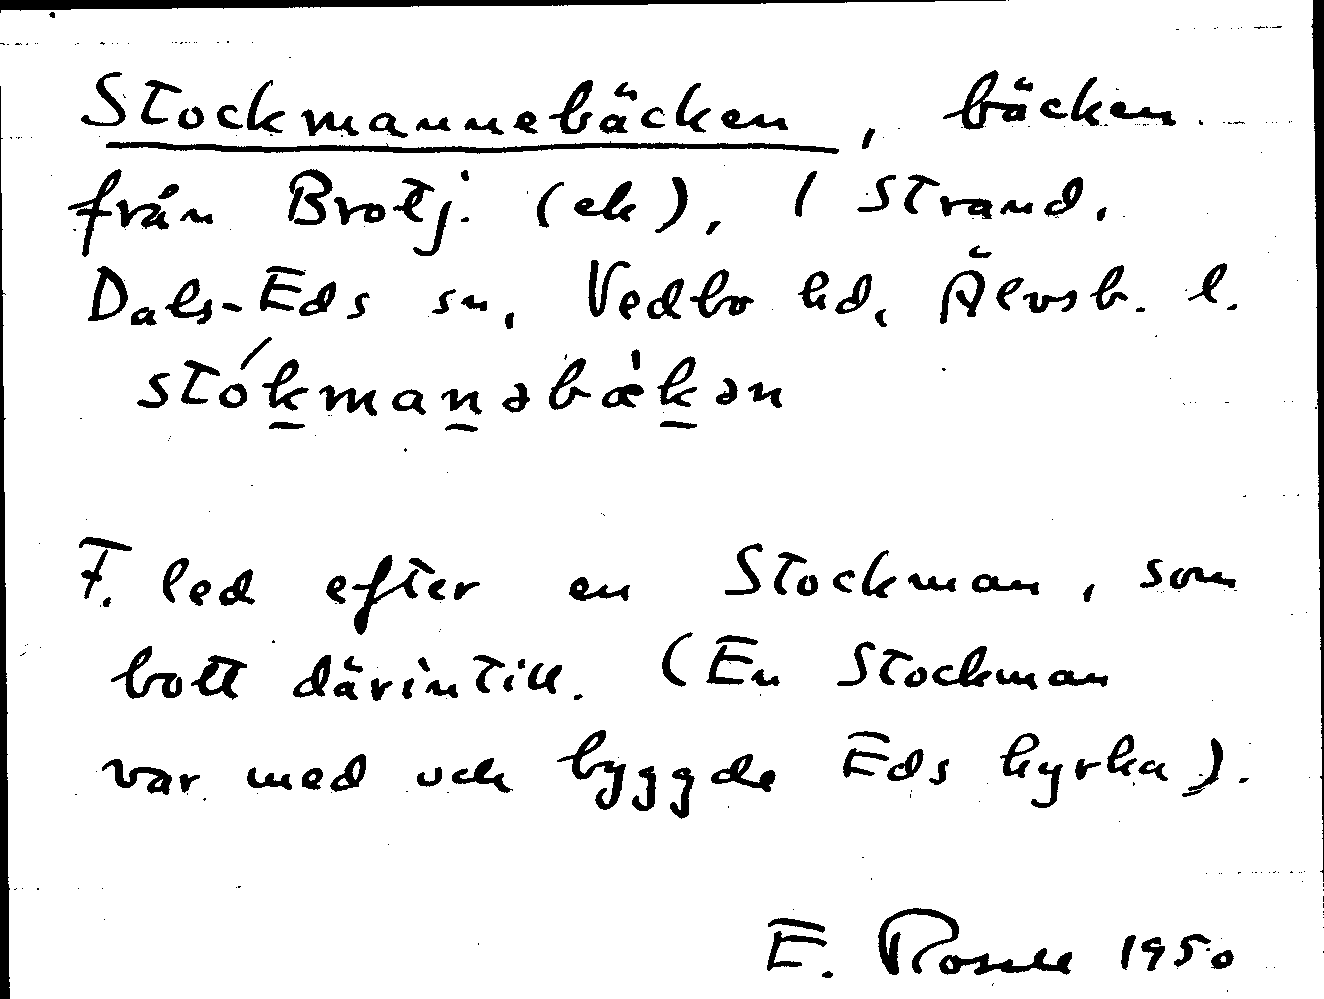 Stockmannebäcken, bäcken
från Brotj. (ek), 1 Strand,
Dals-Eds sn, Vedbo hd, Älvsb. l.
stókmanəbækən

F. led efter en Stockman, som
bott därintill. (En Stockman
var med och byggde Eds kyrka).

E. Rosell 1950